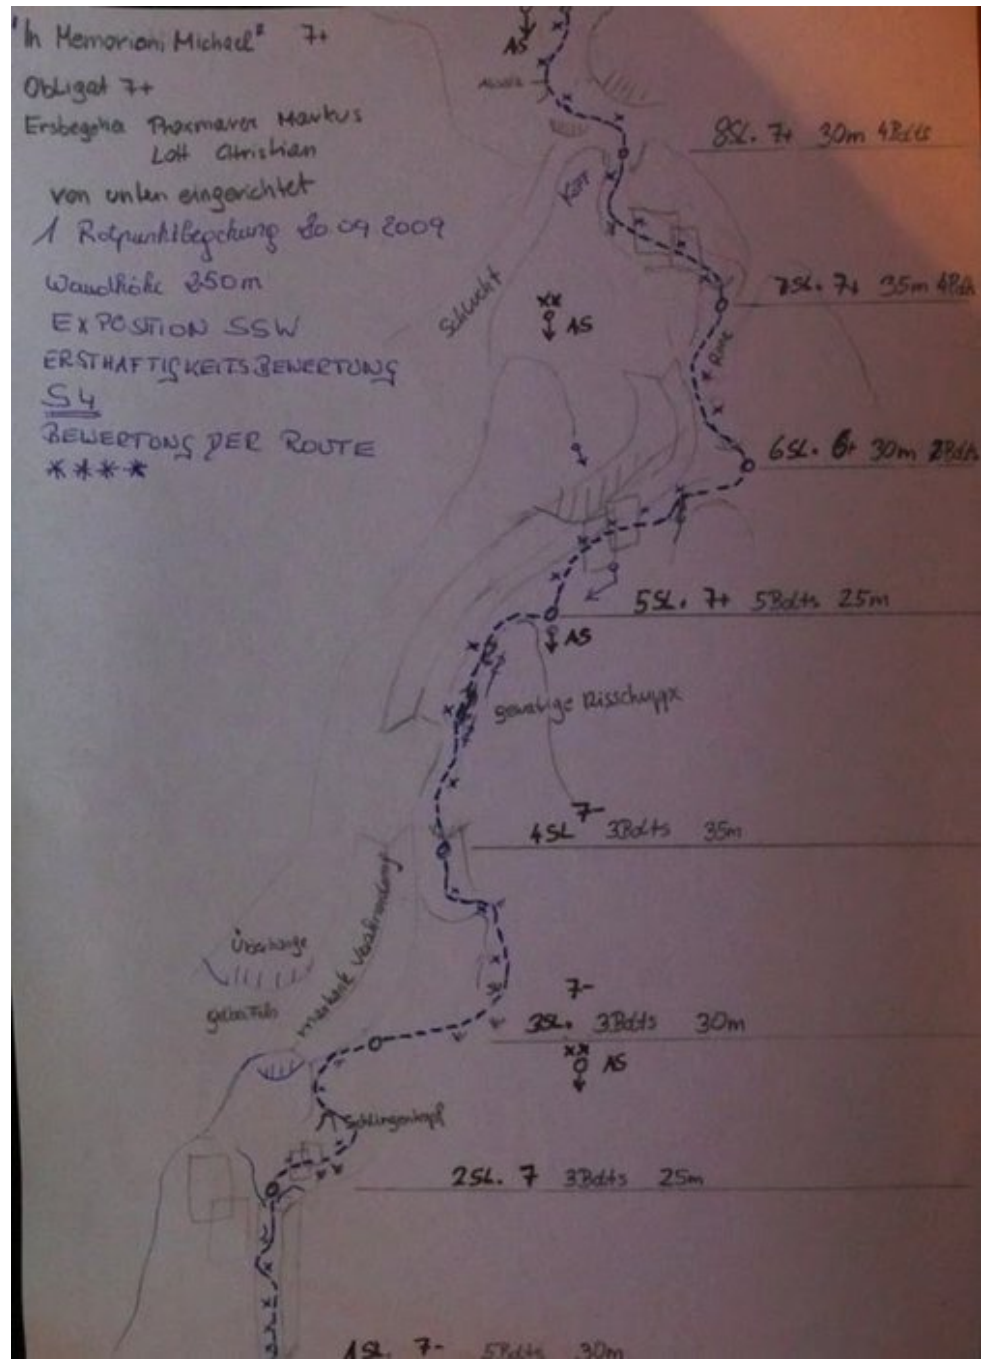 "In Memoriam Michael" 7+
Obligat 7+
Ersbegeher Praxmarer Markus
Lott Christian
von unten eingerichtet
1 Rotpunktbegehung 20.09 2009
Wandhöhe 250m
EXPOSITION SSW
ERSTHAFTIGKEITSBEWERTUNG
S4
BEWERTUNG DER ROUTE
****
AS
8SL. 7+ 30m 4Bolts
Schlucht
7SL. 7+ 35m 4Bolts
AS
6SL. 6+ 30m 2Bolts
5SL. 7+ 5Bolts 25m
AS
gewaltige Risschuppe
7-
4SL 3Bolts 35m
markante Verschneidung
Überhänge
gelber Fels
7-
3SL. 3Bolts 30m
AS
Schlingenkopf
2SL. 7 3Bolts 25m
1SL. 7- 5Bolts 30m